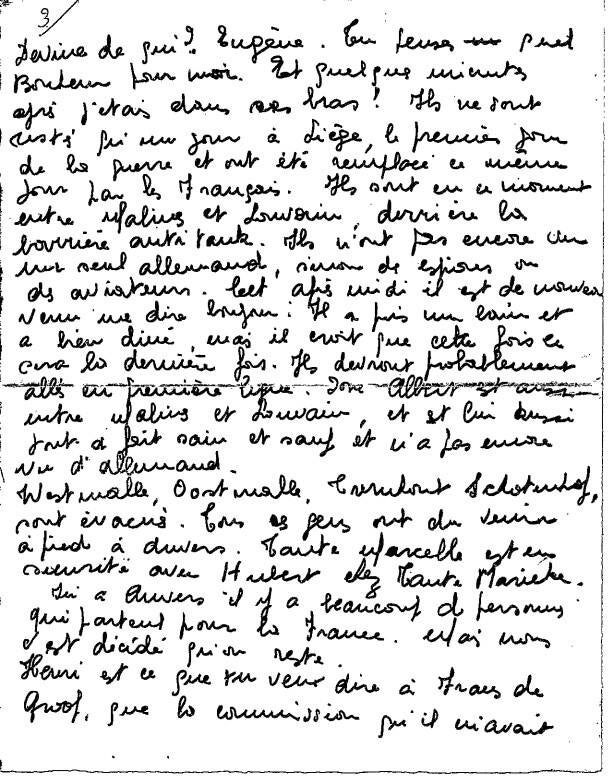 3/
Devine de qui? Eugène. Tu penses quel
Bonheur pour moi. Et quelque minutes
après j'étais dans ses bras! Ils ne sont
resté qu'un jour à Liège, le premier jour
de la guerre et ont été remplacé ce même
jour par les Français. Ils sont en ce moment
entre Malines et Louvain, derrière la
barrière antitank. Ils n'ont pas encore vu
un seul allemand, sinon de espions ou
des aviateurs. Cet après midi il est de nouveau
venu me dire bonjour: Il a pris un bain et
a bien diné, mais il croit que cette fois ce
sera la dernière fois. Ils devront probablement
allés en première ligne. Albert est aussi
entre Malines et Louvain, et est lui aussi
tout à fait sain et sauf et n'a pas encore
vu d'allemand.
Westmalle, Oostmalle, Turnhout Schotenhof,
sont évacués. Tous ces gens ont du venir
à pied à Anvers. Tante Marcelle est en
sécurité avec Hubert chez Tante Marieke.
Ici a Anvers il y a beaucoup de personnes
qui partent pour la France. Mais nous
c'est décidé qu'on reste.
Henri est ce que tu veux dire à Frans de
Groof, que la commission qu'il m'avait